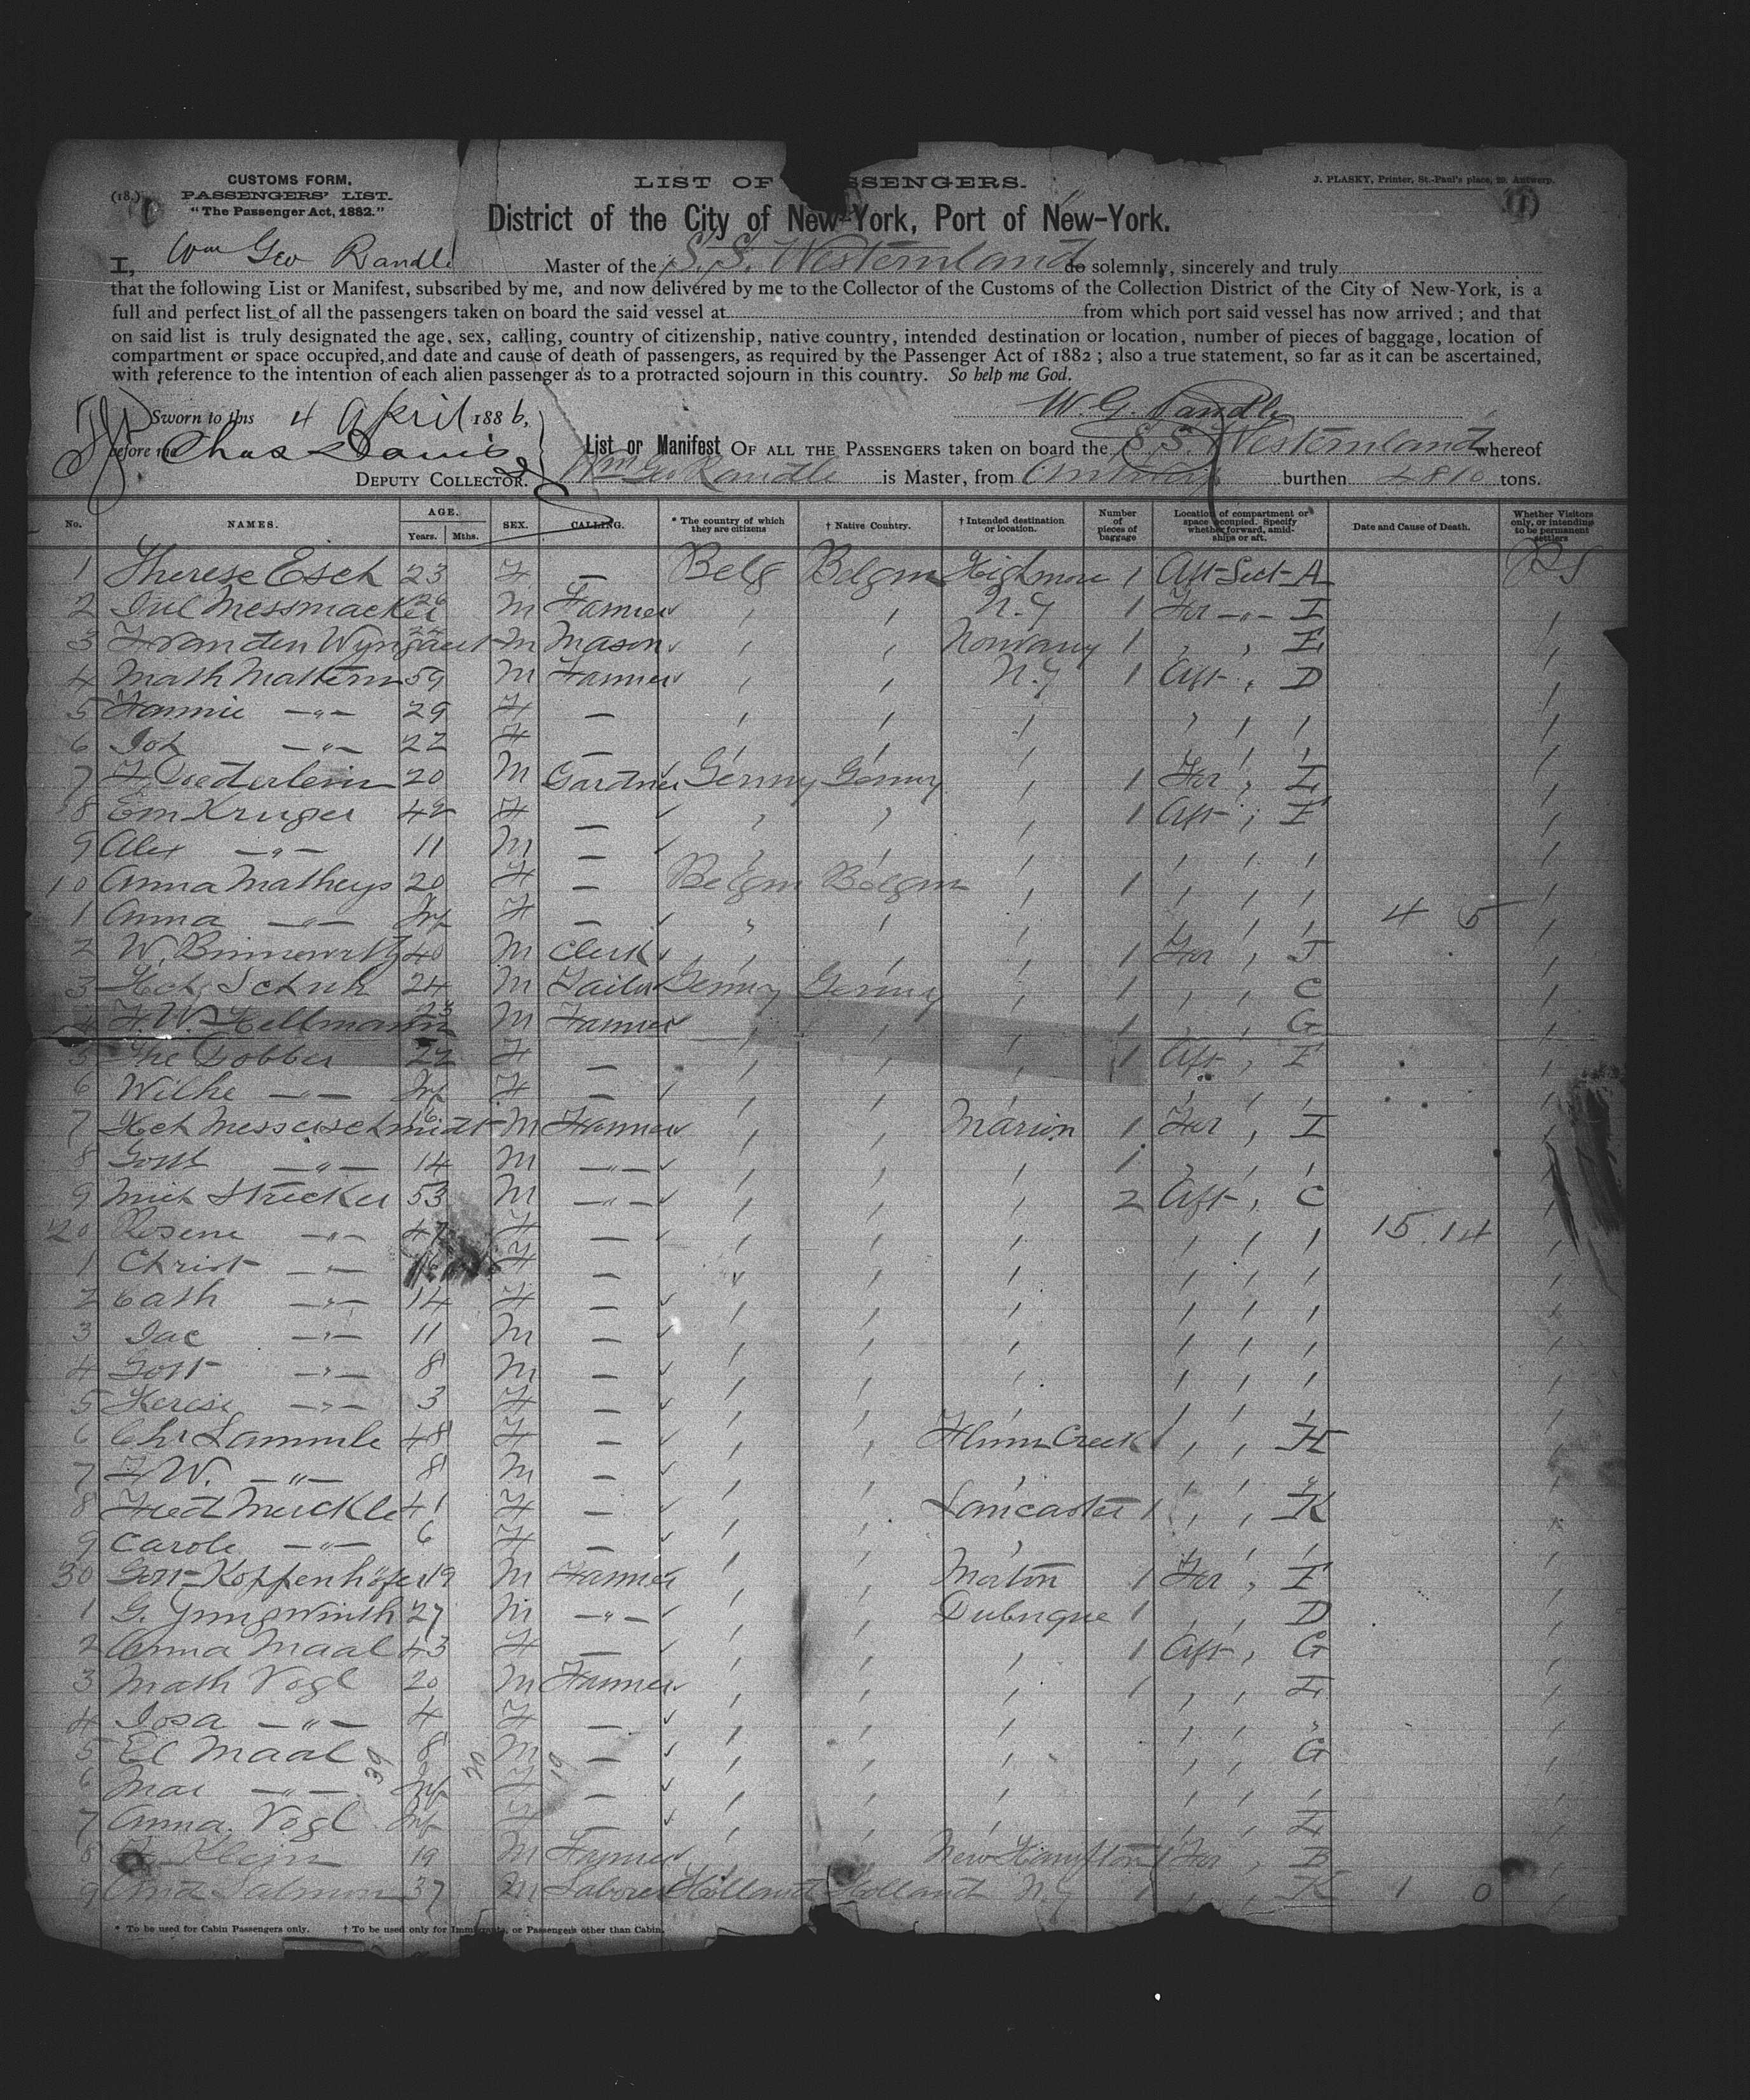 CUSTOMS FORM.
(18.) PASSENGERS' LIST.
"The Passenger Act, 1882."
LIST OF SSENGERS.
J. PLASKY, Printer, St.-Paul's place, 29, Antwerp.
District of the City of New-York, Port of New-York.
I, Wm Geo Randle Master of the S.S. Westernland do solemnly, sincerely and truly
that the following List or Manifest, subscribed by me, and now delivered by me to the Collector of the Customs of the Collection District of the City of New-York, is a
full and perfect list of all the passengers taken on board the said vessel at from which port said vessel has now arrived ; and that
on said list is truly designated the age, sex, calling, country of citizenship, native country, intended destination or location, number of pieces of baggage, location of
compartment or space occupied, and date and cause of death of passengers, as required by the Passenger Act of 1882 ; also a true statement, so far as it can be ascertained,
with reference to the intention of each alien passenger as to a protracted sojourn in this country. So help me God.
W. G. Randle
Sworn to this 4 April 1886,
before me Chas Davis
DEPUTY COLLECTOR.
List or Manifest OF ALL THE PASSENGERS taken on board the S.S. Westernland whereof
Wm Geo Randle is Master, from Antwerp burthen 4810 tons.
No. NAMES. AGE. Years. Mths. SEX. CALLING. * The country of which they are citizens † Native Country. † Intended destination or location. Number of pieces of baggage Location of compartment or space occupied. Specify whether forward, amidships or aft. Date and Cause of Death. Whether Visitors only, or intending to be permanent settlers
1 Therese Esch 23 F — Belg Belgm Highmore 1 Aft Sect A PS
2 Jul Messmacker 26 M Farmer " " N.Y 1 For " I "
3 F van den Wyngaert M Mason " " Norway 1 " " E "
4 Math Mattern 59 M Farmer " " N.Y 1 Aft " D "
5 Fannie " 29 F — " " " " " " "
6 Joh " 22 F — " " " " " "
7 F. Diederlein 20 M Gardner Germy Germy " 1 For " I "
8 Em Kruger 42 F — " " " 1 Aft " E "
9 Alex " 11 M — " " " " " " "
10 Anna Matheys 20 F — Belgm Belgm " 1 " " " "
1 Anna " Inf F — " " " " " " 4 5 "
2 W. 40 M Clerk " " " 1 For " J "
3 Hch Schuh 24 M Tailor Germy Germy " 1 " " C "
4 F. W. Hellmann 23 M Farmer " " " 1 " " G "
5 The Dobber 22 F — " " " 1 Aft " E "
6 Wilhe " Inf F — " " " " " " "
7 Hch Messerschmidt 16 M Farmer " " Marion 1 For " I "
8 Gottl " 14 M " " " " 1 " " " "
9 Mich Stricker 53 M " " " " 2 Aft " C "
20 Rosene " 47 F — " " " " " " 15.14 "
1 Christ " 16 F — " " " " " " "
2 Cath " 14 F — " " " " " " "
3 Jac " 11 M — " " " " " " "
4 Gott " 8 M — " " " " " " "
5 Kerese " 3 F — " " " " " " "
6 Chr Lammle 48 F — " " Creek 1 " " H "
7 F W. " 8 M — " " " " " " "
8 Fried Merckle 41 F — " " Lancaster 1 " " K "
9 Carole " 6 F — " " " " " " "
30 Gott Koppenhöfer 19 M Farmer " " Morton 1 For " E "
1 G. Jungwirth 27 M " " " Dubuque 1 " " D "
2 Anna Maal 43 F — " " " 1 Aft " G "
3 Math Vogl 20 M Farmer " " " 1 " " I "
4 Josa " 4 F — " " " " " " "
5 El Maal 8 M — " " " G "
6 Mar " Inf F — " " " " " " "
7 Anna Vogl Inf F — " " " " " I "
8 Klein 19 M Farmer " " New Hampton 1 For " B "
9 Salmon 37 M Laborer Holland Holland N.Y 1 " " K 1 0 "
39 20 19
* To be used for Cabin Passengers only. † To be used only for Immigrants, or Passengers other than Cabin.